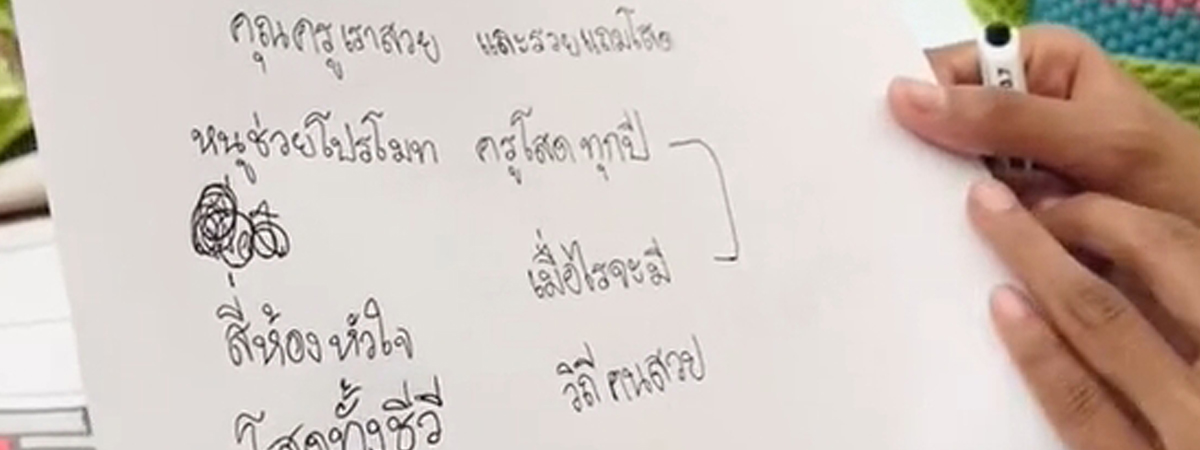 คุณครูเราสวย และรวยแถมโสด
หนูช่วยโปรโมท ครูโสดทุกปี
เมื่อไรจะมี
สี่ห้องหัวใจ
วิถีคนสวย
โสดทั้งชีวี